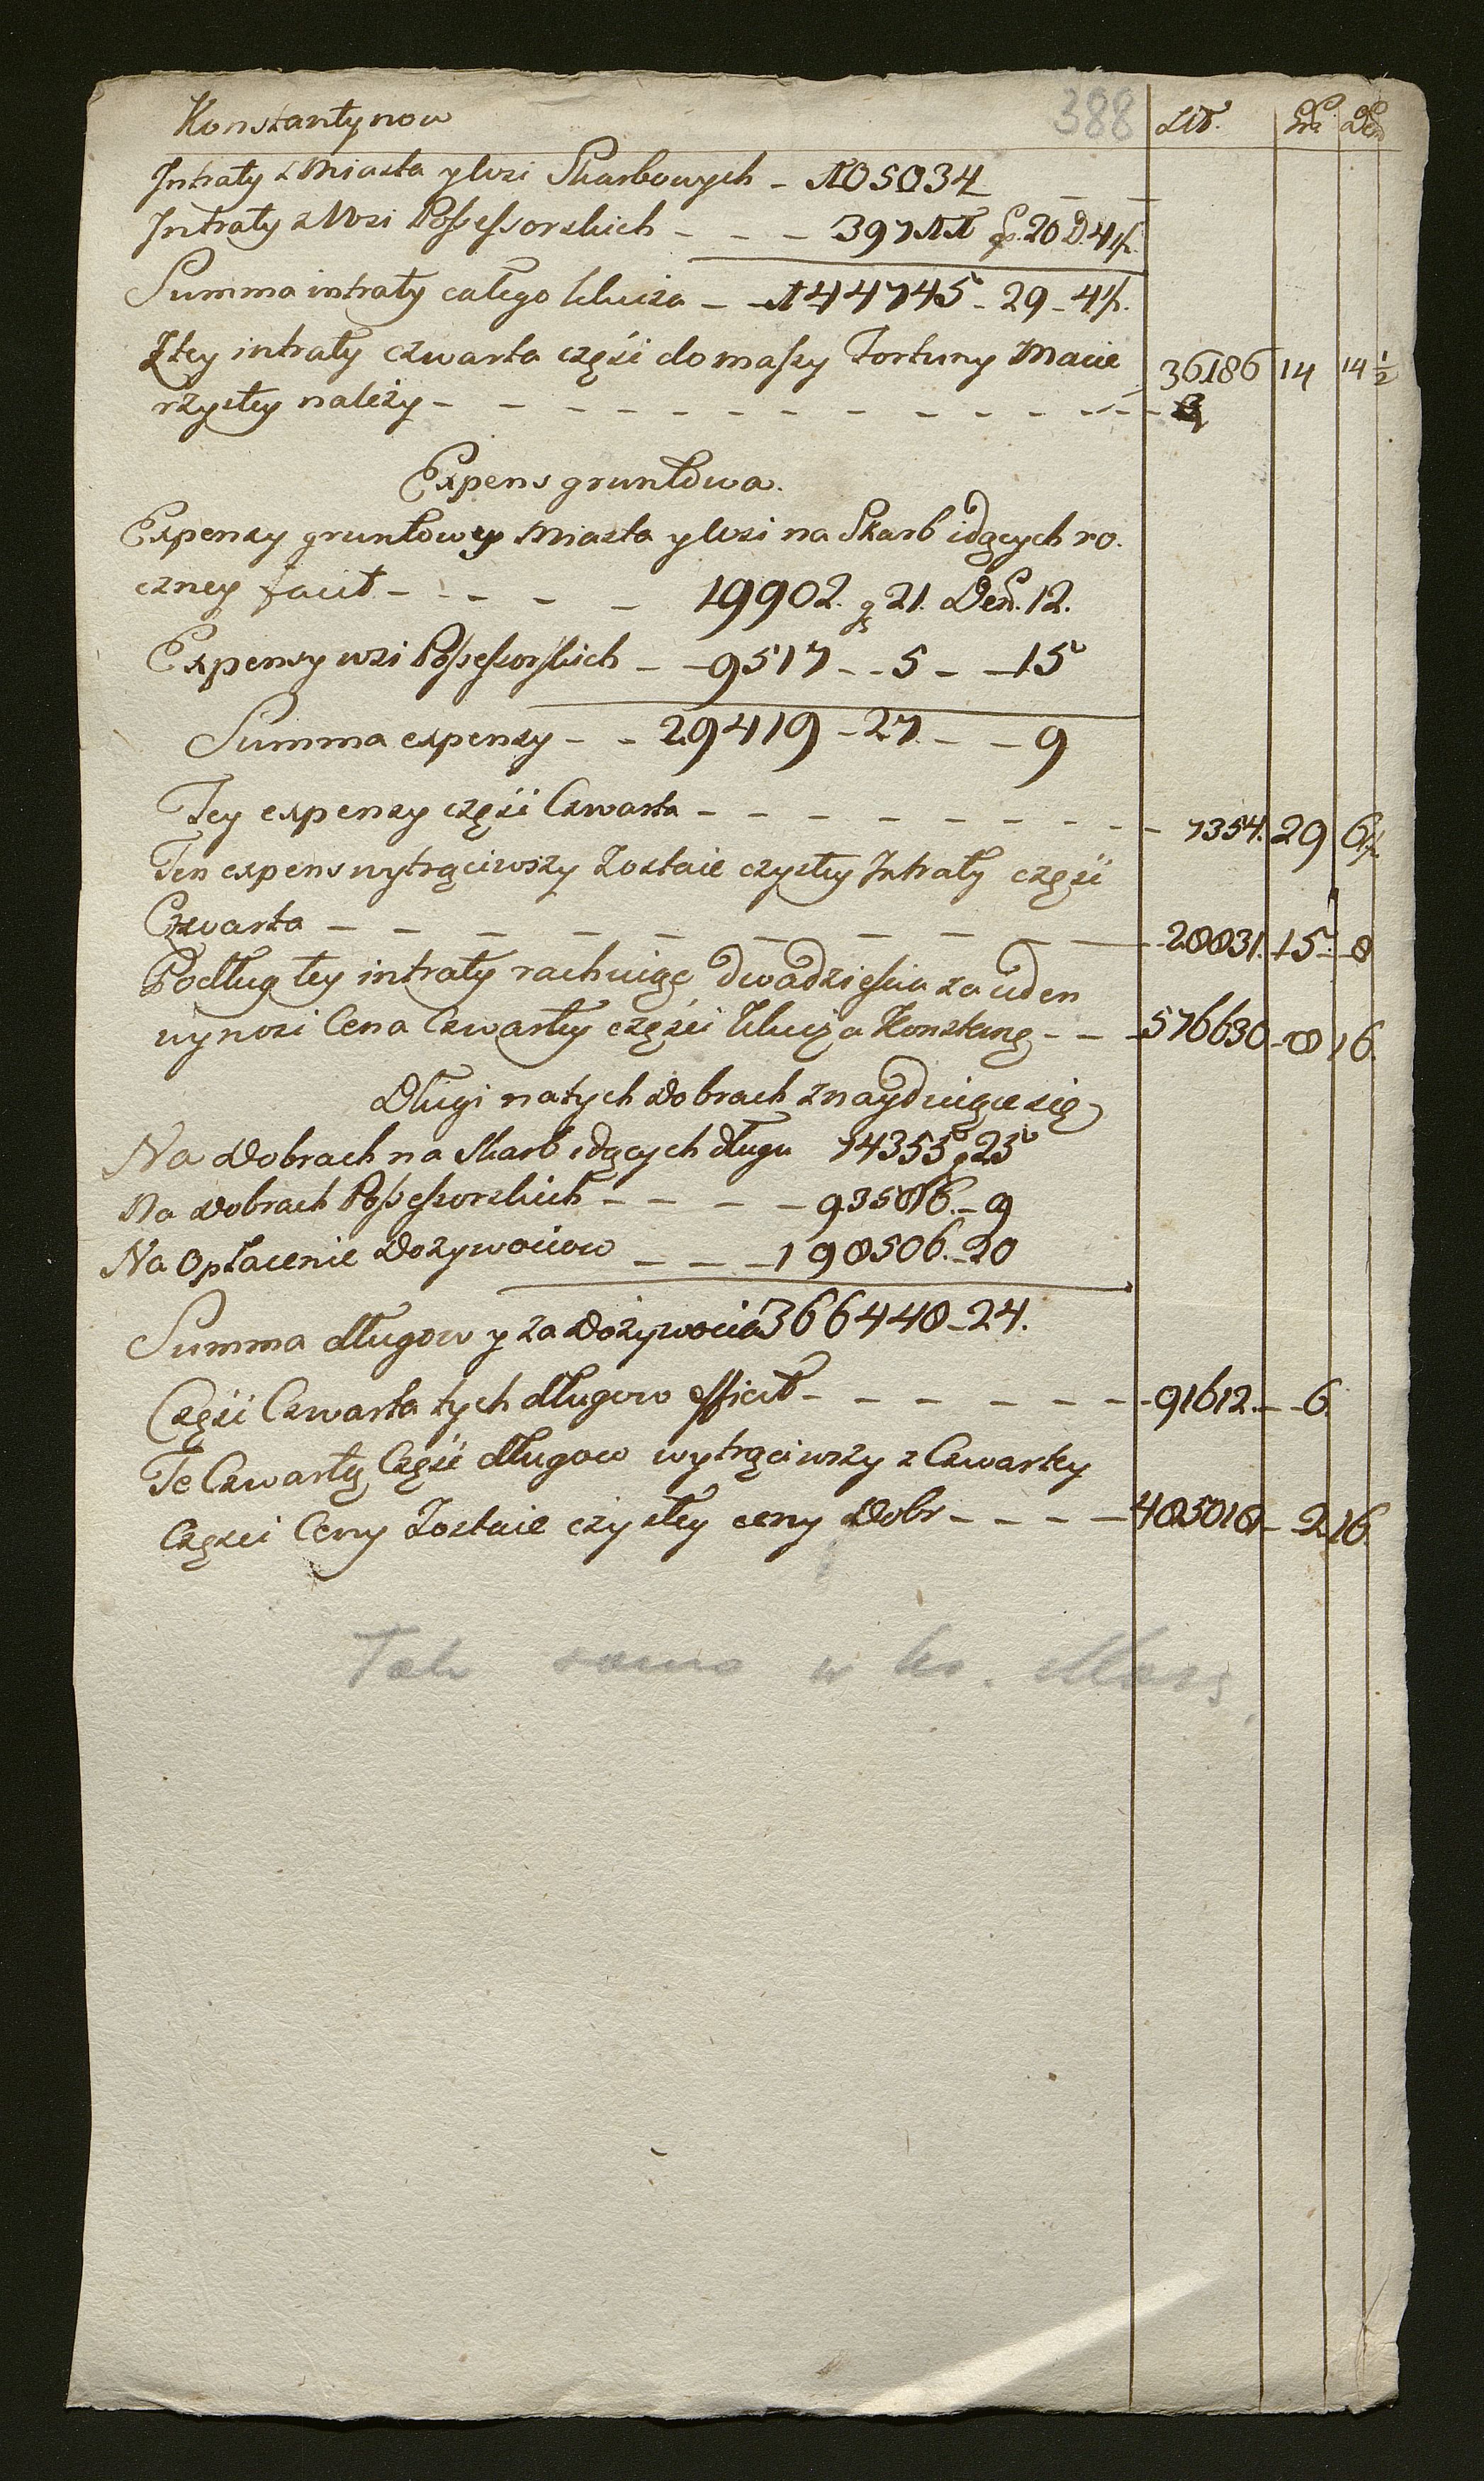 388
Konstantynow Zło. gr. Den
Intraty z Miasta y Wsi Skarbowych - 105034
Intraty z Wsi Possessorskich - - - 39711 g. 20 D. 4½
Summa intraty całego klucza - - 144745 - 29 - 4½.
Z tey intraty czwarta część do massy Fortuny Macie 36186 14 14 ½
rzystey należy - - - - - - - - - - - -
Expens gruntowa.
Expensy gruntowey Miasta y Wsi na Skarb idących ro.
czney facit - - - - - 19902. g 21. Den. 12.
Expensy wsi Possessorskich - - 9517 - - 5 - - 15
Summa expensy - - 29419 - 27 - - 9
Tey expensy część Czwarta - - - - - - - - - 7354. 29 6½
Ten expens wytrąciwszy zostaie czystey Intraty część
Czwarta - - - - - - - - - 28831. 15. 8
Podług tey intraty rachuiąc dwadzieścia za ieden
wynosi Cena Czwartey części klucza Konstang - - - 576630 - 8 16.
Długi na tych dobrach znayduiące się
Na dobrach na Skarb idących długu 74355 g 25
Na dobrach Possessorskich - - - - 93586. - 9
Na Opłacenie Dożywociow - - - 198506. - 20
Summa długow y za Dożywocia 366448 - 24.
Część Czwarta tych długow efficit - - - - - - - 91612. - - 6.
Te Czwartą Część długow wytrąciwszy z Czwartey
Części Ceny Zostaie czystey ceny Dobr - - - - 485018 - 2 16.
Tak samo w ks. Mass.